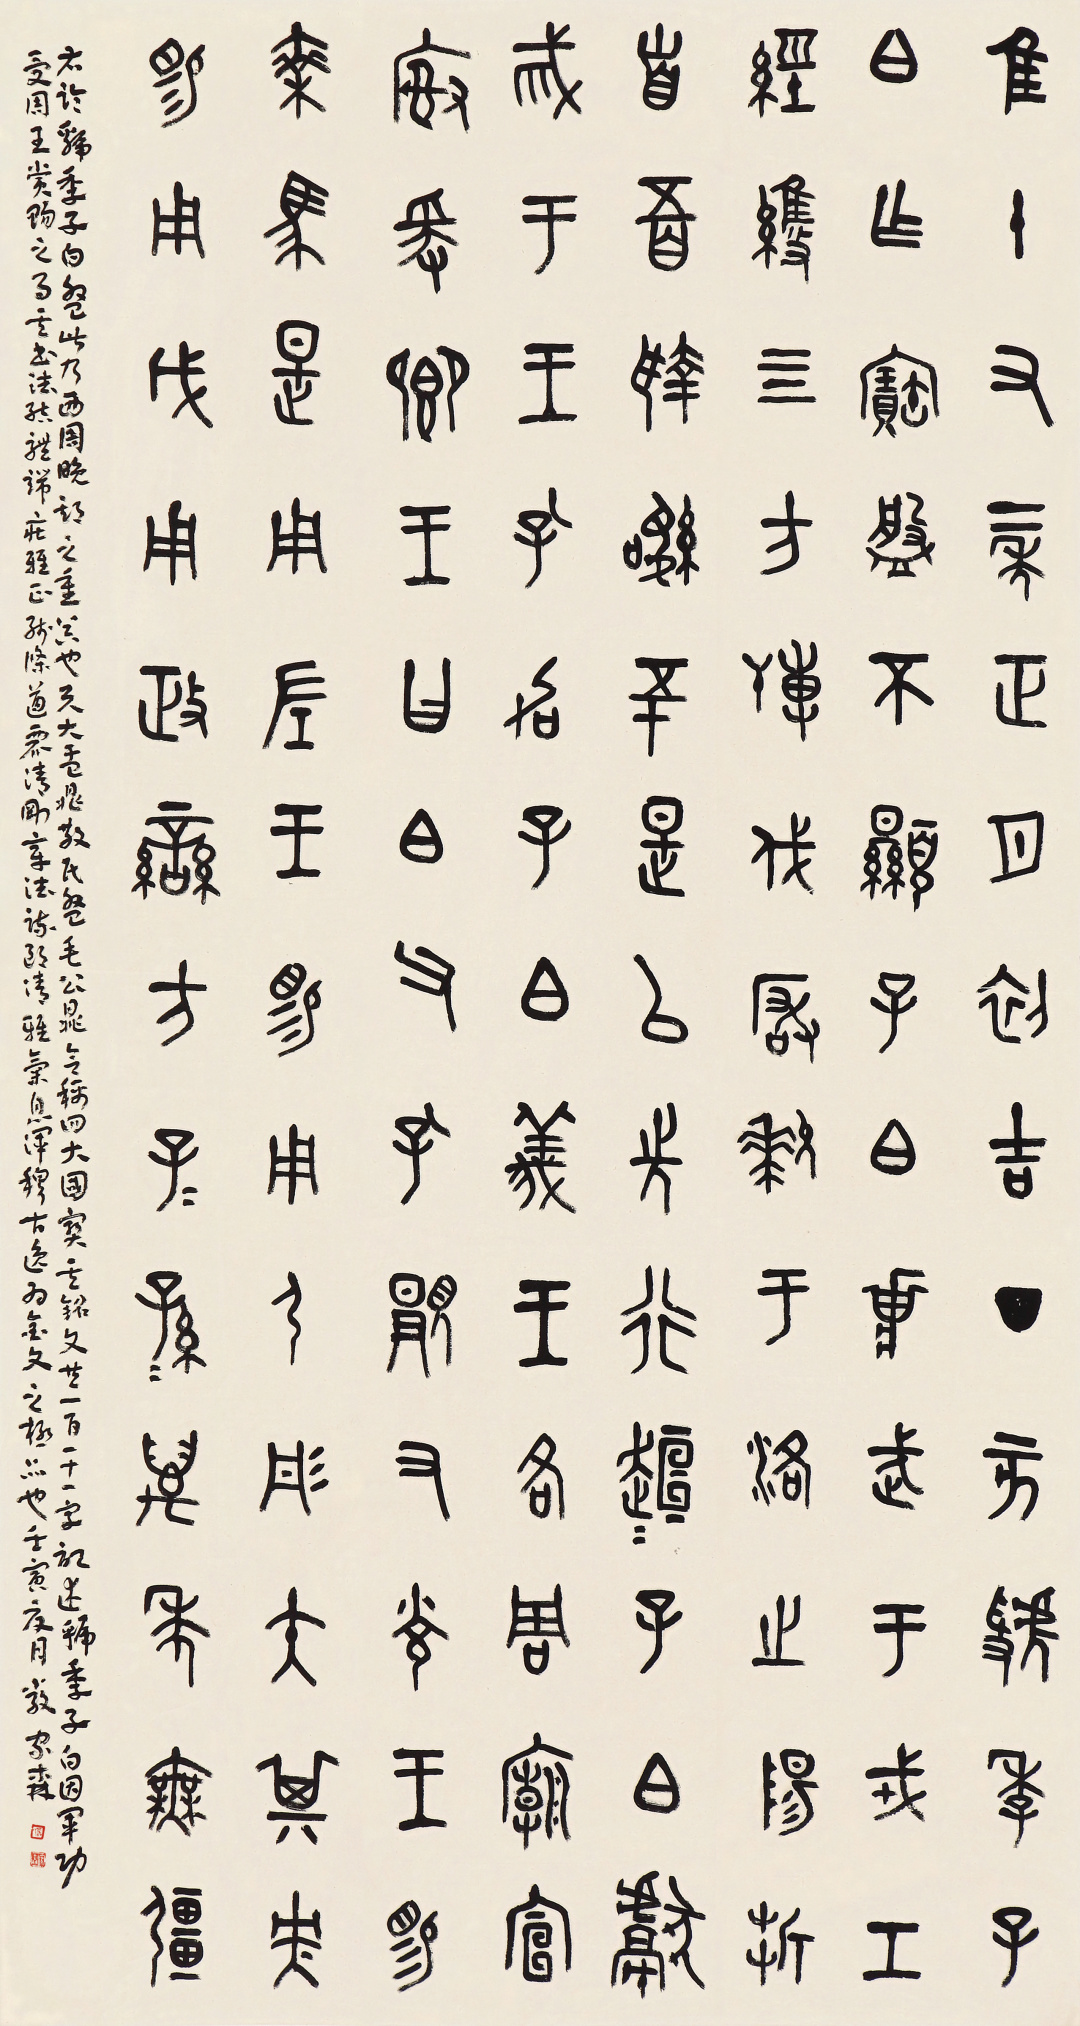 隹十又二年正月初吉丁亥虢季子
白乍寶盤不顯子白壯武于戎工
經維四方搏伐玁狁于洛之陽折
首五百執訊五十是以先行趄=子白獻
戒于王孔加子白義王各周廟宣
榭爰鄉王曰白父孔顯又光王賜
乘馬是用左王賜用弓彤矢其央
賜用戉用政蠻方子=孫=萬年無疆
右临虢季子白盤此乃西周晚期之重器也與大盂鼎散氏盤毛公鼎合稱四大國寶其銘文共一百一十一字記述虢季子白因軍功
受周王賞賜之事其書法結體端莊雅正線條遒麗清剛章法疏朗清雅氣息渾穆古逸为金文之極品也壬寅夏月嚴家森